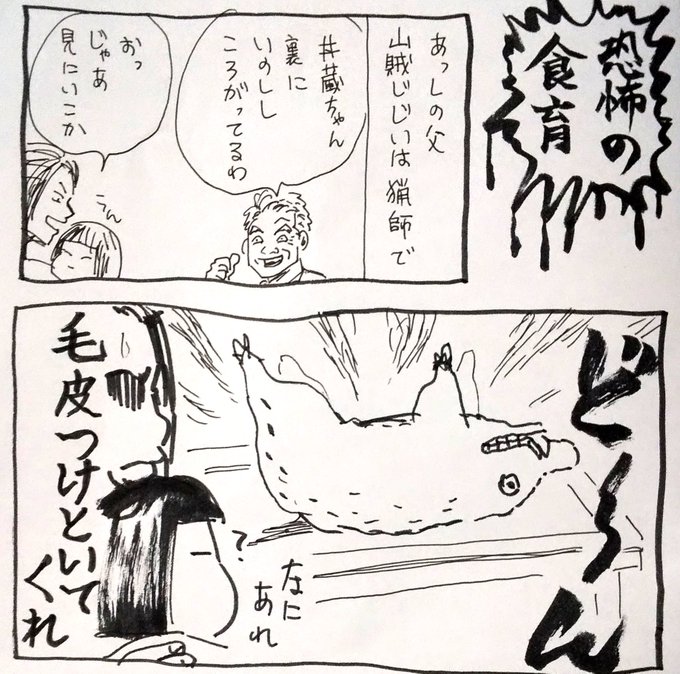 恐怖の
食育
あっしの父
山賊じじいは猟師で
井蔵ちゃん
裏に
いのしし
ころがってるわ
おっ
じゃあ
見にいこか
うん
ど〜ん
なに
あれ
?
毛皮つけといて
くれ